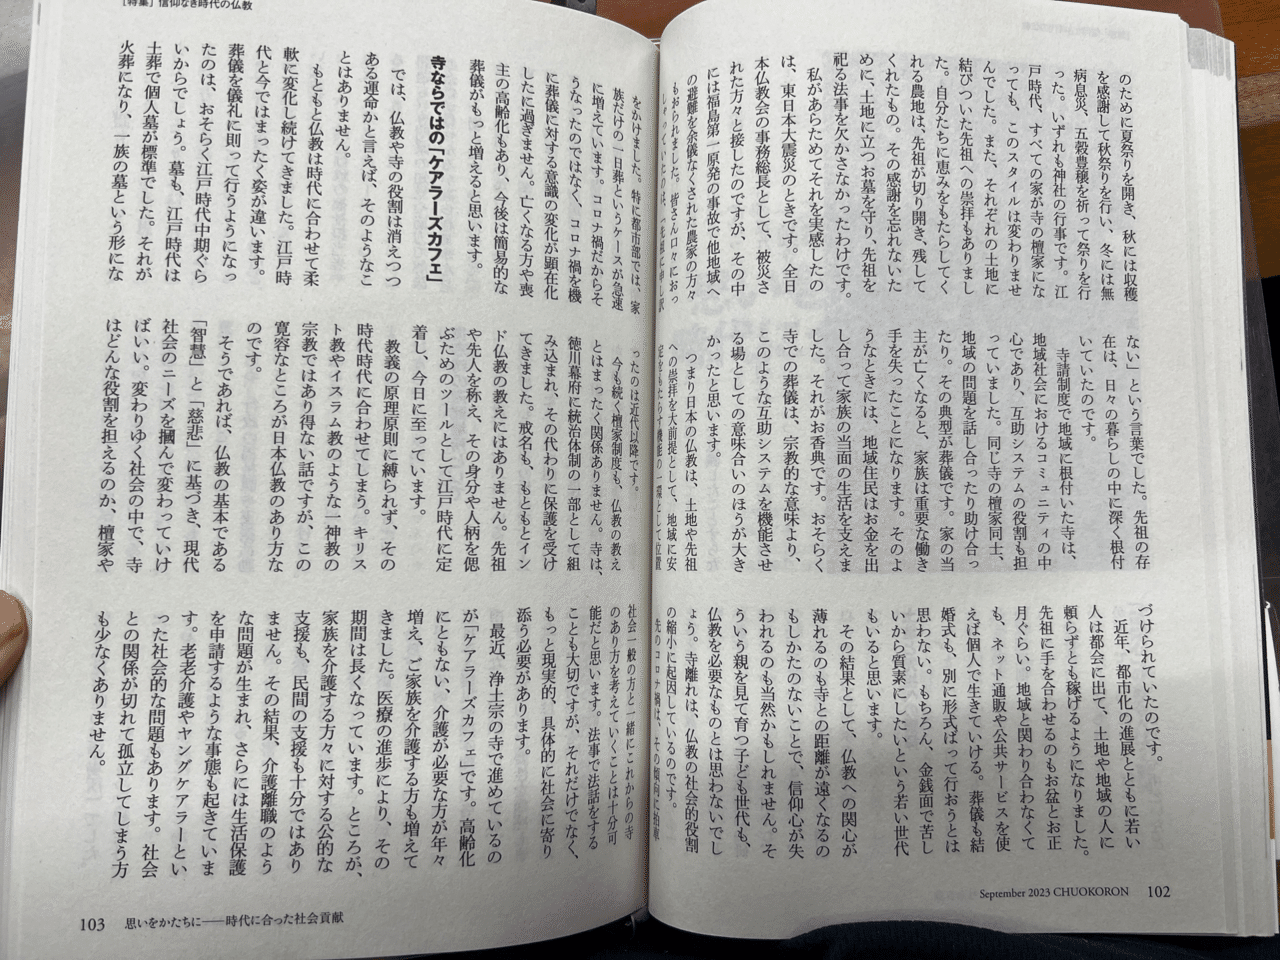 のために夏祭りを開き、秋には収穫
を感謝して秋祭りを行い、冬には無
病息災、五穀豊穣を祈って祭りを行
った。いずれも神社の行事です。江
戸時代、すべての家が寺の檀家にな
っても、このスタイルは変わりませ
んでした。また、それぞれの土地に
結びついた先祖への崇拝もありまし
た。自分たちに恵みをもたらしてく
れる農地は、先祖が切り開き、残して
くれたもの。その感謝を忘れないた
めに、土地に立つお墓を守り、先祖を
祀る法事を欠かさなかったわけです。
私があらためてそれを実感したの
は、東日本大震災のときです。全日
本仏教会の事務総長として、被災さ
れた方々と接したのですが、その中
には福島第一原発の事故で他地域へ
の避難を余儀なくされた農家の方々
もおられました。皆さん口々におっ
しゃっていたのは、「先祖に申し訳
ない」という言葉でした。先祖の存
在は、日々の暮らしの中に深く根付
いていたのです。
寺請制度で地域に根付いた寺は、
地域社会におけるコミュニティの中
心であり、互助システムの役割も担
っていました。同じ寺の檀家同士、
地域の問題を話し合ったり助け合っ
たり。その典型が葬儀です。家の当
主が亡くなると、家族は重要な働き
手を失ったことになります。そのよ
うなときには、地域住民はお金を出
し合って家族の当面の生活を支えま
した。それがお香典です。おそらく
寺での葬儀は、宗教的な意味より、
このような互助システムを機能させ
る場としての意味合いのほうが大き
かったと思います。
つまり日本の仏教は、土地や先祖
への崇拝を大前提として、地域に安
定をもたらす機能の一環として位置
づけられていたのです。
近年、都市化の進展とともに若い
人は都会に出て、土地や地域の人に
頼らずとも稼げるようになりました。
先祖に手を合わせるのもお盆とお正
月ぐらい。地域と関わり合わなくて
も、ネット通販や公共サービスを使
えば個人で生きていける。葬儀も結
婚式も、別に形式ばって行おうとは
思わない。もちろん、金銭面で苦し
いから質素にしたいという若い世代
もいると思います。
その結果として、仏教への関心が
薄れるのも寺との距離が遠くなるの
もしかたのないことで、信仰心が失
われるのも当然かもしれません。そ
ういう親を見て育つ子ども世代も、
仏教を必要なものとは思わないでし
ょう。寺離れは、仏教の社会的役割
の縮小に起因しているのです。
先のコロナ禍は、その傾向に拍車
September 2023 CHUOKORON 102
[特集] 信仰なき時代の仏教
をかけました。特に都市部では、家
族だけの一日葬というケースが急速
に増えています。コロナ禍だからそ
うなったのではなく、コロナ禍を機
に葬儀に対する意識の変化が顕在化
したに過ぎません。亡くなる方や喪
主の高齢化もあり、今後は簡易的な
葬儀がもっと増えると思います。
寺ならではの「ケアラーズカフェ」
では、仏教や寺の役割は消えつつ
ある運命かと言えば、そのようなこ
とはありません。
もともと仏教は時代に合わせて柔
軟に変化し続けてきました。江戸時
代と今ではまったく姿が違います。
葬儀を儀礼に則って行うようになっ
たのは、おそらく江戸時代中期ぐら
いからでしょう。墓も、江戸時代は
土葬で個人墓が標準でした。それが
火葬になり、一族の墓という形にな
ったのは近代以降です。
今も続く檀家制度も、仏教の教え
とはまったく関係ありません。寺は、
徳川幕府に統治体制の一部として組
み込まれ、その代わりに保護を受け
てきました。戒名も、もともとイン
ド仏教の教えにはありません。先祖
や先人を称え、その身分や人柄を偲
ぶためのツールとして江戸時代に定
着し、今日に至っています。
教義の原理原則に縛られず、その
時代時代に合わせてしまう。キリス
ト教やイスラム教のような一神教の
宗教ではあり得ない話ですが、この
寛容なところが日本仏教のあり方な
のです。
そうであれば、仏教の基本である
「智慧」と「慈悲」に基づき、現代
社会のニーズを摑んで変わっていけ
ばいい。変わりゆく社会の中で、寺
はどんな役割を担えるのか、檀家や
社会一般の方と一緒にこれからの寺
のあり方を考えていくことは十分可
能だと思います。法事で法話をする
ことも大切ですが、それだけでなく、
もっと現実的、具体的に社会に寄り
添う必要があります。
最近、浄土宗の寺で進めているの
が「ケアラーズカフェ」です。高齢化
にともない、介護が必要な方が年々
増え、ご家族を介護する方も増えて
きました。医療の進歩により、その
期間は長くなっています。ところが、
家族を介護する方々に対する公的な
支援も、民間の支援も十分ではあり
ません。その結果、介護離職のよう
な問題が生まれ、さらには生活保護
を申請するような事態も起きていま
す。老老介護やヤングケアラーとい
った社会的な問題もあります。社会
との関係が切れて孤立してしまう方
も少なくありません。
103 思いをかたちに——時代に合った社会貢献